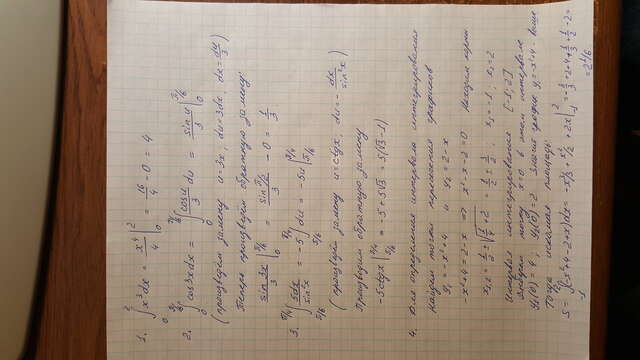 1. ∫₀² x³dx = x⁴/4 |₀² = 16/4 - 0 = 4
2. ∫₀^(π/6) cos3x dx = ∫₀^(π/6) cosu/3 du = sin u/3 |₀^(π/6)
(произведём замену u=3x, du=3dx, dx=du/3)
Теперь произведём обратную замену:
sin 3x/3 |₀^(π/6) = sin π/2 /3 - 0 = 1/3
3. ∫_(π/6)^(π/4) 5dx/sin²x = -5 ∫_(π/6)^(π/4) du = -5u |_(π/6)^(π/4)
(произведём замену u=ctgx, du=-dx/sin²x)
Производим обратную замену
-5ctgx |_(π/6)^(π/4) = -5+5√3 = 5(√3-1)
4. Для определения интервала интегрирования
Найдем точки пересечения графиков
y₁=-x²+4 и y₂=2-x
-x²+4=2-x => x²-x-2=0 Находим корни
x₁,₂ = 1/2 ± √(1/4+2) = 1/2 ± 3/2, x₁=-1; x₂=2
Интервал интегрирования [-1; 2]
точку x=0 в этом интервале
y₁(0)=4; y₂(0)=2 Значит график y₁=-x²+4 - выше
Тогда искомая площадь:
S = ∫₋₁² (-x²+4-2+x)dx = -x³/3 + x²/2 + 2x |₋₁² =